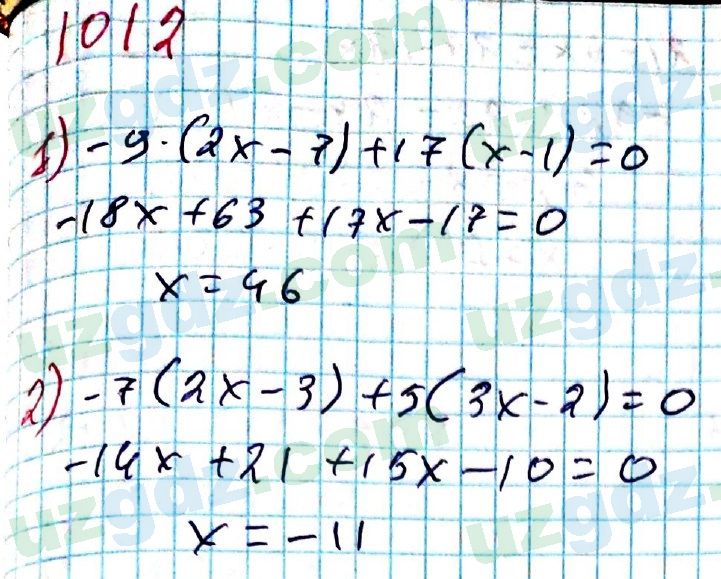 1012
1) -9·(2x-7)+17(x-1)=0
-18x+63+17x-17=0
x=46
2) -7(2x-3)+5(3x-2)=0
-14x+21+15x-10=0
x=-11
uzgdz.com
uzgdz.com
uzgdz.com
uzgdz.com
uzgdz.com
uzgdz.com